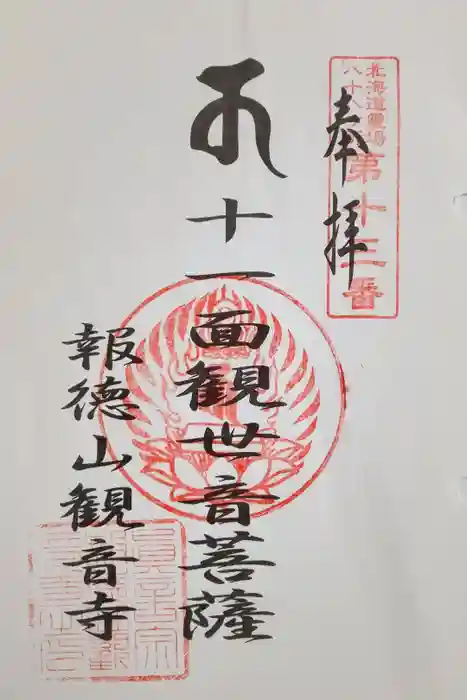 北海道霊場
八十八
第十三番
奉拝
十一面観世音菩薩
報徳山観音寺